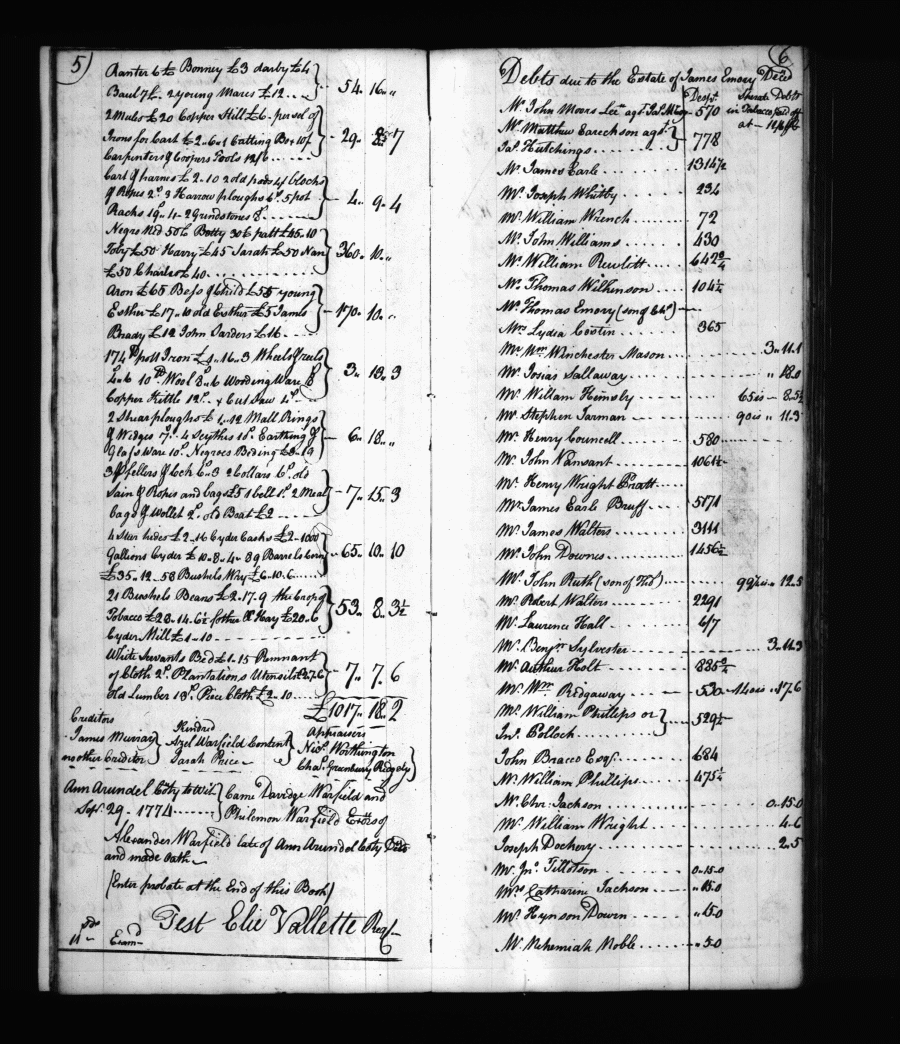 5)
Ranter 6£ Bonney £3 darby £4
Baul 7£. 2 young Mares £12 .. } 54.. 16.. "
2 Mules £20 Copper Still £6. per sel of
Irons for Cart £2..6..1 Cutting Box 10/.
Carpenters & Coopers Tools 12/6 } 29.. 7
Cart & harness £2-10 2 old 4 blocks
& Ropes 2/. 2 Harrow ploughs 6/. 5 pot
Racks 19.. 4.. 2 Grindstones 8/. } 4.. 9.. 4
Negro Ned 50£ Betty 30£ patt £45..10
Toby £50 Harry £45 Sarah £50 Nan
£50 Charles £40 } 360.. 10.. "
Aron £65 Bess & Child £55 young
Esther £17..10 old Esther £5 James
Brady £12 John Sanders £16 } 170.. 10.. "
174 lb pott Iron £1..16..3 Wheels & reels
10 lb Wool 8..6 Wooding Ware 8/.
Copper Kittle 12/. X Cut Saw 4/. } 3.. 18.. 3
2 Shear ploughs £1..12 Mall Rings
& Wedges 7/. 4 Scythes 10/. Earthing &
Glass Ware 10/. Negroes Beding £3..19 } 6.. 18.. "
3 2 Collars 6/. old
Sain & Ropes and bags £5 1 bell 1/. 2 Meal
bags & Wollet 2/. old Boat £2 } 7.. 15.. 3
4 Steer hides £2..16 Cyder Casks £2.. 1000
Gallions Cyder £10..8..4.. 89 Barrels Corn
£35..12.. 58 Bushels Whey £6..10..6 } 65.. 10.. 10
21 Bushels Beans £2..17..9 the Crop of
Tobacco £28..14..6½ fother & Hay £20..6
Cyder Mill £1..10 } 53.. 8.. 3½
White Servants Bed £1..15 Remnant
of Cloth 2/. Plantations Utensils
old Lumber 13/. Piece Cloth £2..10 } 7.. 7.. 6
£1017.. 18.. 2
Creditors Kindred Appraisers
James Murray } Azel Warfield Content } Nich. Worthington
no other Creditor } Sarah Price Chas. Greenbury Ridgely
Ann Arundel Coty to Wit } Came Davidge Warfield and
Sepr. 29. 1774 } Philemon Warfield Exors of
Alexander Warfield late of Ann Arundel Coty Decd
and made oath
(Enter probate at the End of this Book)
Test Elie Vallette Regr
Examd
6
Debts due to the Estate of James Emory Decd
Despt. Sperate Debts
Mr. John Moors 570 in Tobacco paid off
at - 12/6 pCt
Mr. Matthew Earechson agt. }
Jas. Hutchings } 778
Mr. James Earle 1314½
Mr. Joseph Whitby 234
Mr. William Wrench 72
Mr. John Williams 430
Mr. William Rewlitt 642¾
Mr. Thomas Wilkinson 104½
Mr. Thomas Emory (son of )
Mrs. Lydia Costin 365
Mr. Wm. Winchester Mason 3..11.1
Mr. Josias Sallaway " 18.0
Mr. William Hemsly 65is - 8.5½
Mr. Stephen Jarman 90is .. 11.3
Mr. Henry Councell 580
Mr. John Nansant 1061½
Mr. Henry Wright Pratt
Mr. James Earle Bruff 5171
Mr. James Walters 3111
Mr. John Downes 1456½
Mr. John Ruth (son of ) 99½is .. 12.5
Mr. Robert Walters 2291
Mr. Laurence Hall 617
Mr. Benjn. Sylvester 3..11.3
Mr. Arthur Holt 835¾
Mr. Wm. Ridgaway 530 140is .. 17.6
Mr. William Phillips or }
Jas. Pollock } 529½
John Bracco Esqr. 684
Mr. William Phillips 475½
Mr. Chr. Jackson 0..15.0
Mr. William Wright 4.6
Joseph Dockery 2.5
Mr. Jno. Tillotson 0..15.0
Mrs. Catharine Jackson " 15.0
Mr. Hynson Down " 15.0
Mr. Nehemiah Noble " 5.0